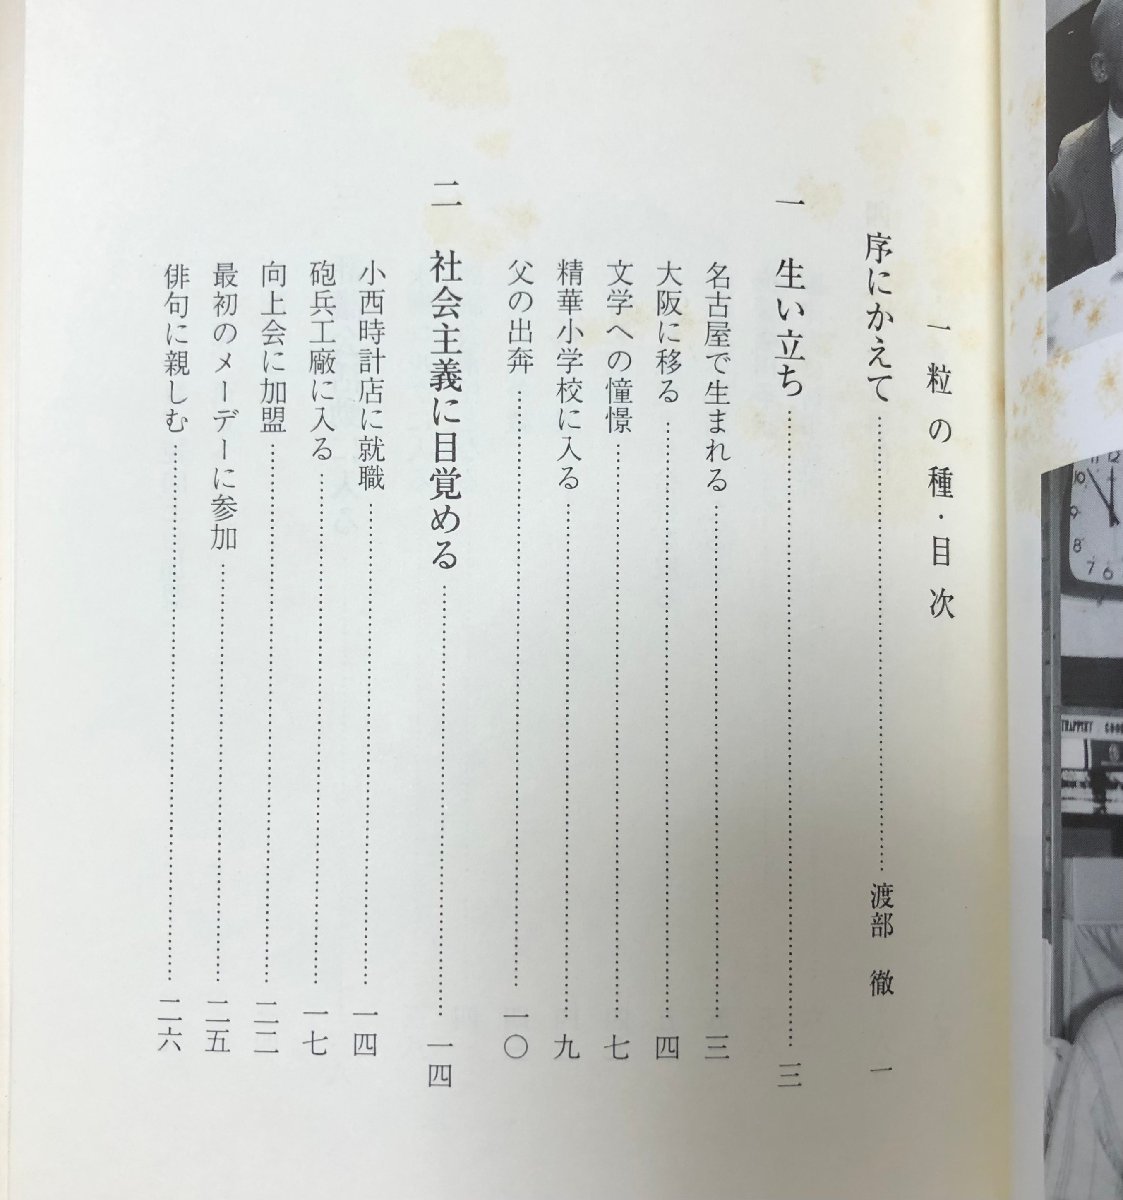 一粒の種・目次
序にかえて……渡部 徹 一
一 生い立ち……三
名古屋で生まれる……三
大阪に移る……四
文学への憧憬……七
精華小学校に入る……九
父の出奔……一〇
二 社会主義に目覚める……一四
小西時計店に就職……一四
砲兵工廠に入る……一七
向上会に加盟……二二
最初のメーデーに参加……二五
俳句に親しむ……二六
12
11
10
9
8
7 6